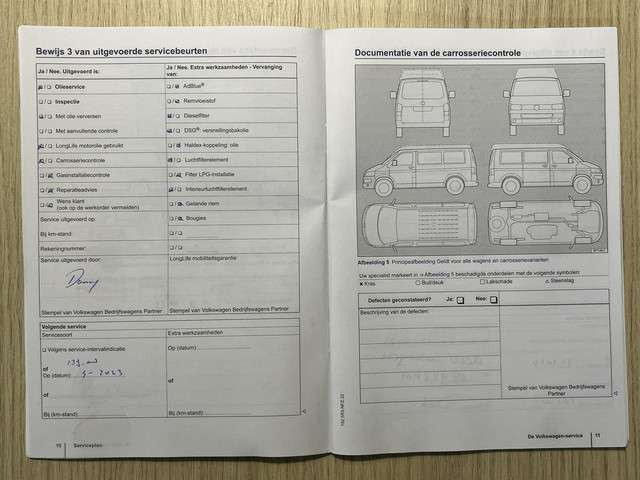 Bewijs 3 van uitgevoerde servicebeurten
Ja / Nee. Uitgevoerd is:
Olieservice
Inspectie
Met olie verversen
Met aanvullende controle
LongLife motorolie gebruikt
Carrosseriecontrole
Gasinstallatiecontrole
Reparatieadvies
Wens klant
(ook op de werkorder vermelden)
Service uitgevoerd op:
Bij km-stand:
Rekeningnummer:
Service uitgevoerd door:
Stempel van Volkswagen Bedrijfswagens Partner
Ja / Nee. Extra werkzaamheden - Vervanging
van:
AdBlue®
Remvloeistof
Dieselfilter
DSG®: versnellingsbakolie
Haldex-koppeling: olie
Luchtfilterelement
Filter LPG-installatie
Interieurluchtfilterelement
Getande riem
Bougies
LongLife mobiliteitsgarantie
Stempel van Volkswagen Bedrijfswagens Partner
Volgende service
Servicesoort
Volgens service-intervalindicatie
of
Op (datum)
2023
of
Bij (km-stand)
Extra werkzaamheden
Op (datum)
of
Bij (km-stand)
10 Serviceplan
Documentatie van de carrosseriecontrole
Afbeelding 5 Principeafbeelding Geldt voor alle wagens en carrosserievarianten
Uw specialist markeert in ⇒ Afbeelding 5 beschadigde onderdelen met de volgende symbolen:
x Kras O Buil/deuk □ Lakschade △ Steenslag
Defecten geconstateerd? Ja: □ Nee: □
Beschrijving van de defecten:
Stempel van Volkswagen Bedrijfswagens
Partner
De Volkswagen-service 11